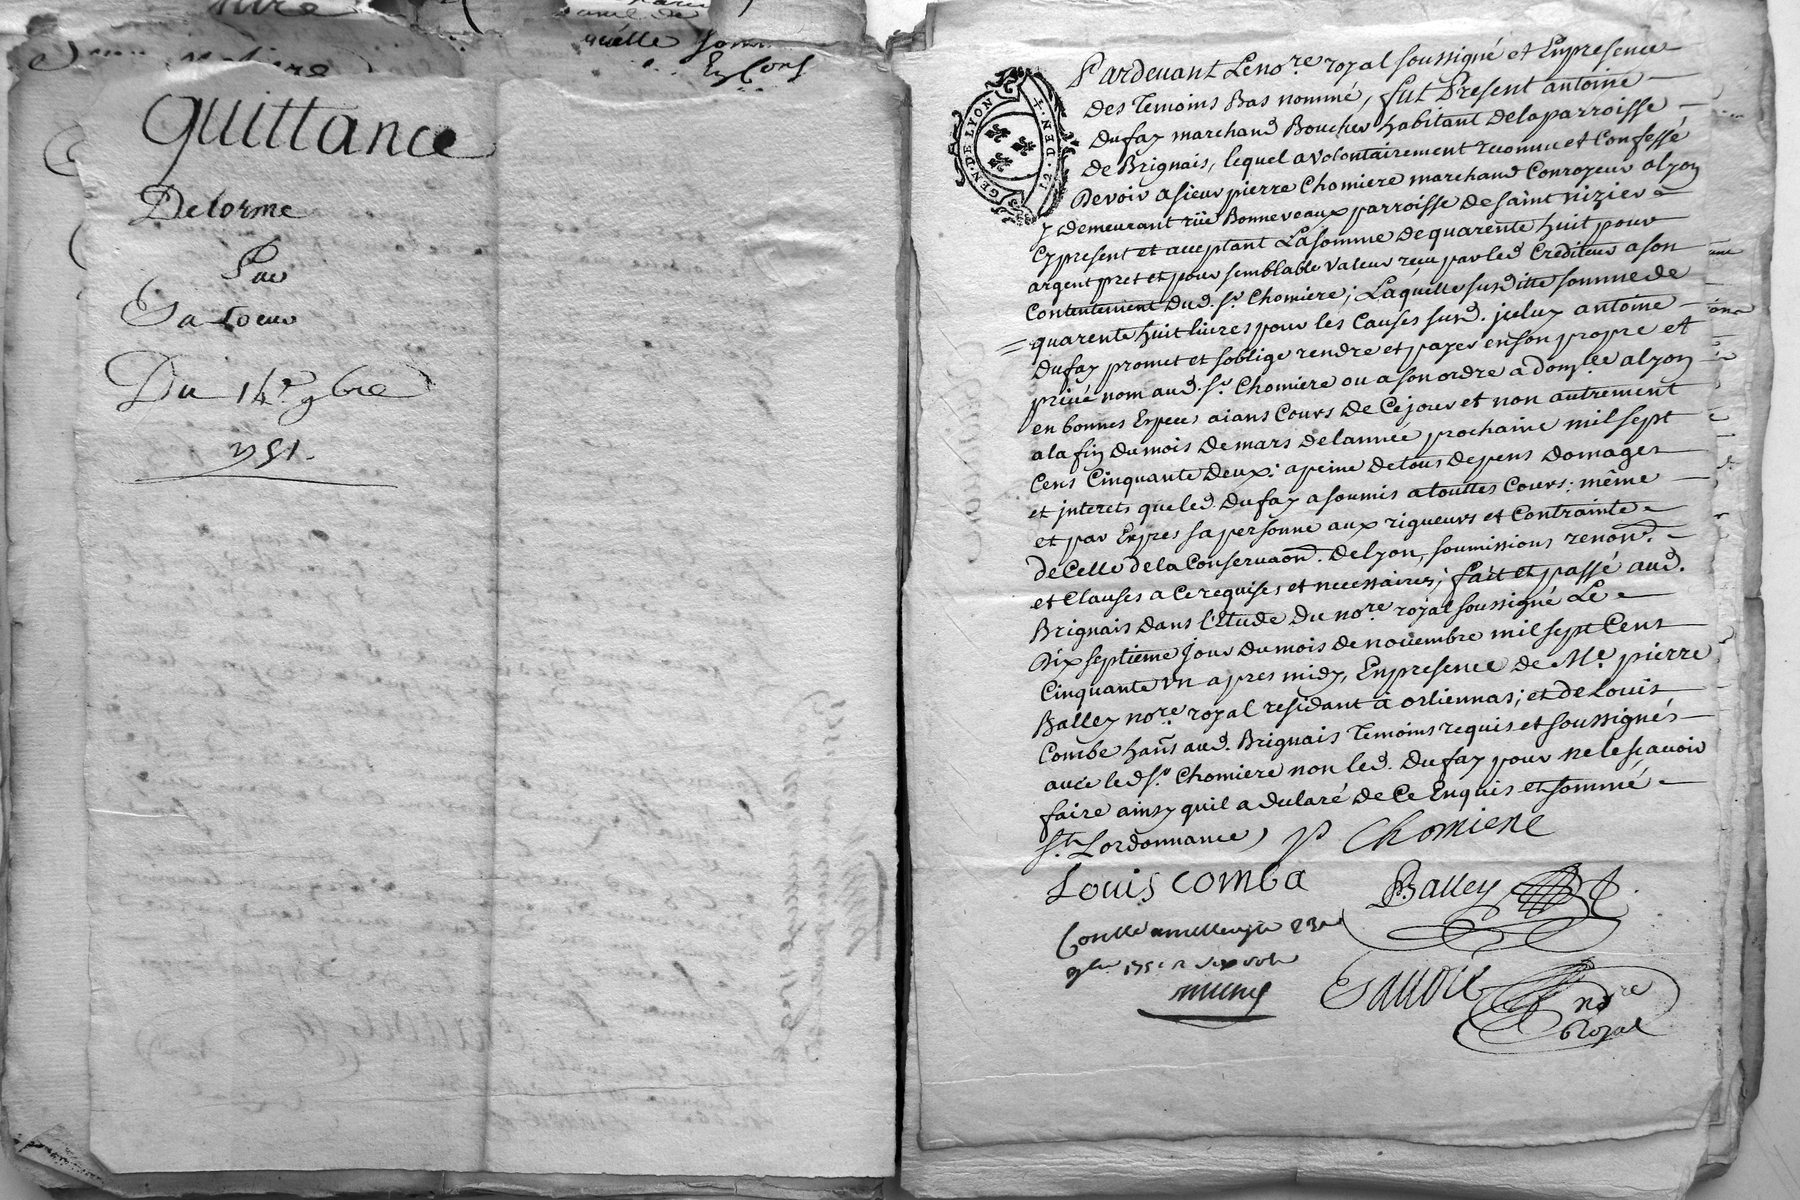 quelle somme
Quittance
Delorme
Par
Sa Soeur
Du 14e 9bre
1751.
GEN. DE LYON
Pardevant Leno.re royal soussigné et Enpresence
des temoins Bas nommé, fut Present antoine
Dufay marchand Boucher habitant delaparroisse
de Brignais, lequel avolontairement reconnu et Confessé
Devoir asieur pierre Chomiere marchand Conroyeur alyon
y demeurant rüe Bonneveaux parroisse de saint nizier a
Cypresent et acceptant Lasomme de quarente huit pour
argent pret et pour semblable valeur reçu par led Crediteur ason
Contentement dud. Sr. Chomiere; Laquelle susditte somme de
quarente huit livres pour les Causes susd. jceluy antoine
Dufay promet et soblige rendre et payer enson propre et
privé nom aud. Sr. Chomiere ou ason ordre a dom.le alyon
en bonnes Especes aians Cours de Cejour et non autrement
ala fin dumois de mars delannée prochaine mil sept
Cens Cinquante deux: apeine detous depens domages
et jnterets queled. Dufay asoumis atouttes Cours: même
et par Expres sapersonne aux rigueurs et Contrainte
de Celle de la Conservaon. de Lyon, soumissions renon.
et Clauses a Ce requises et necessaires; fait et passé aud.
Brignais dans l'Etude du no.re royal soussigné Le
Dix septieme jour dumois de novembre mil sept Cent
Cinquante un apres midy, Enpresence de Me. pierre
Balley no.re royal residant à orliennas; et de Louis
Combe hañs aud. Brignais temoins requis et soussignés
avec led Sr. Chomiere non led. Dufay pour ne le scavoir
faire ainsy quil a declaré de Ce Enquis et sommé
st. Lordonnance P Chomiere
Louis comba Balley
1751
Savoie nore
Royal